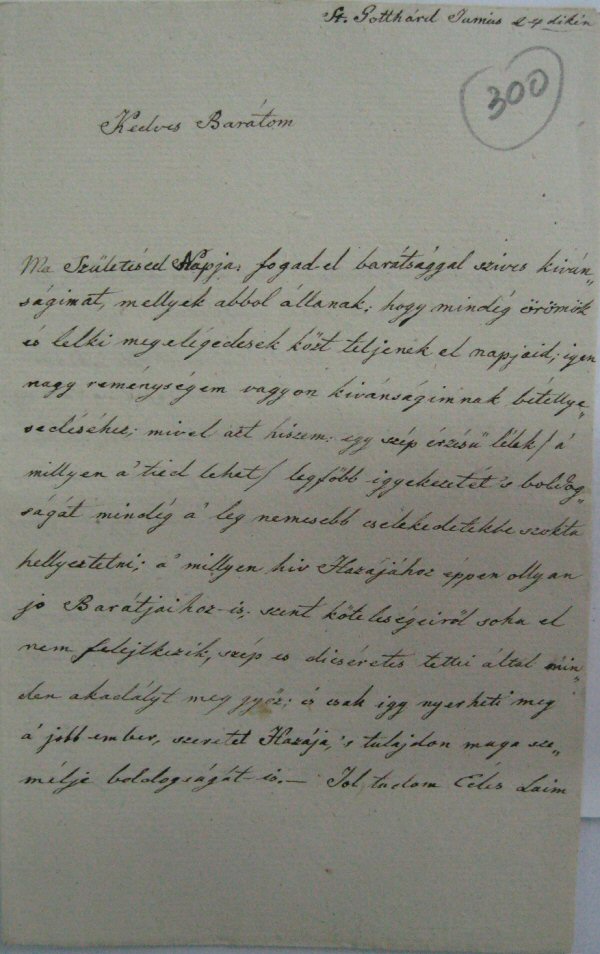 St. Gotthárd Junius 24dikén
300
Kedves Barátom
Ma Születésed Napja, fogad-el barátsággal szives kiván„
ságimat, mellyek abbol állanak; hogy mindég örömök
és lelki megelégedések közt teljenek el napjaid; igen
nagy reménységem vagyon kivánságimnak bétellye„
sedéséhez; mivel azt hiszem: egy szép érzésü lélek/ á
millyen a' tied lehet/ legföbb igyekezetét 's boldog„
ságát mindég a' leg nemesebb cselekedetekbe szokta
hellyeztetni; a' millyen hiv Hazájához éppen ollyan
jo Barátjaihoz-is; szent kötelességeiröl soha el
nem felejtkezik, szép es dicséretes tettei által min„
den akadályt meg györ; és csak igy nyerheti meg
á jobb ember, szeretet Hazája, 's tulajdon maga sze„
mélje boldogságát-is.— Jol tudom Édes Laim